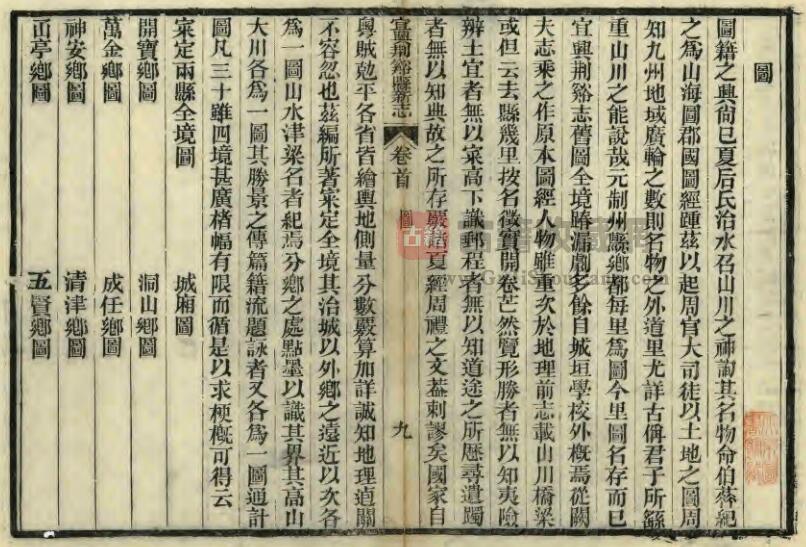 圖
圖籍之興尙已夏后氏治水召山川之神詢其名物命伯益紀
之爲山海圖郡國圖經踵茲以起周官大司徒以土地之圖周
知九州地域廣輪之數則名物之外道里尤詳古偁君子所繇
重山川之能說哉元制州縣鄕都每里爲圖今里圖名存而已
宜興荆谿志舊圖全境踳漏劇多餘自城垣學校外槪焉從闕
夫志乘之作原本圖經人物雖重次於地理前志載山川橋梁
或但云去縣幾里按名徵實開卷茫然覽形勝者無以知夷險
辨土宜者無以寀高下識郵程者無以知道途之所歷尋遺躅
者無以知典故之所存嚴諸夏經周禮之文葢刺謬矣國家自
宜興荆谿縣新志
卷首
圖
九
粵賊勊平各省皆繪輿地側量分數覈算加詳誠知地理逌關
不容忽也茲編所著寀定全境其治城以外鄕之遠近以次各
爲一圖山水津梁名者紀焉分鄕之處點墨以識其界其高山
大川各爲一圖其勝景之傳篇籍流題詠者又各爲一圖通計
圖凡三十雖四境甚廣楮幅有限而循是以求梗槪可得云
寀定兩縣全境圖
城廂圖
開寶鄕圖
洞山鄕圖
萬金鄕圖
成任鄕圖
神安鄕圖
清津鄕圖
山亭鄕圖
五賢鄕圖
古籍